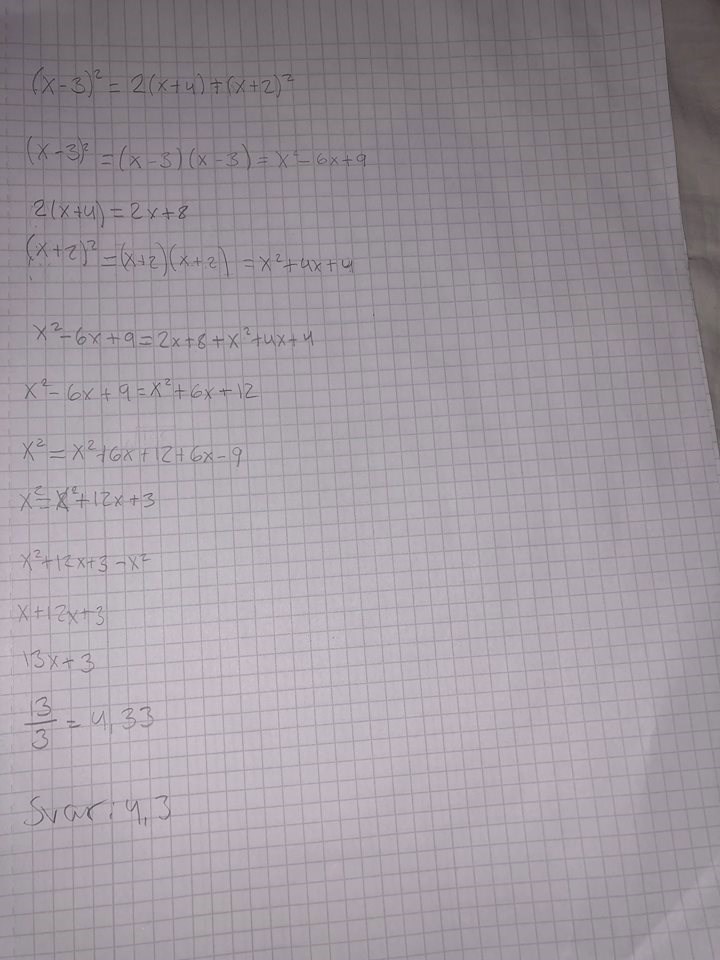 (x-3)² = 2(x+4)+(x+2)²
(x-3)² = (x-3)(x-3) = x²-6x+9
2(x+4) = 2x+8
(x+2)² = (x+2)(x+2) = x²+4x+4
x²-6x+9 = 2x+8+x²+4x+4
x²-6x+9 = x²+6x+12
x² = x²+6x+12+6x-9
x² = x²+12x+3
x²+12x+3-x²
x+12x+3
13x+3
13/3 = 4,33
Svar: 4,3